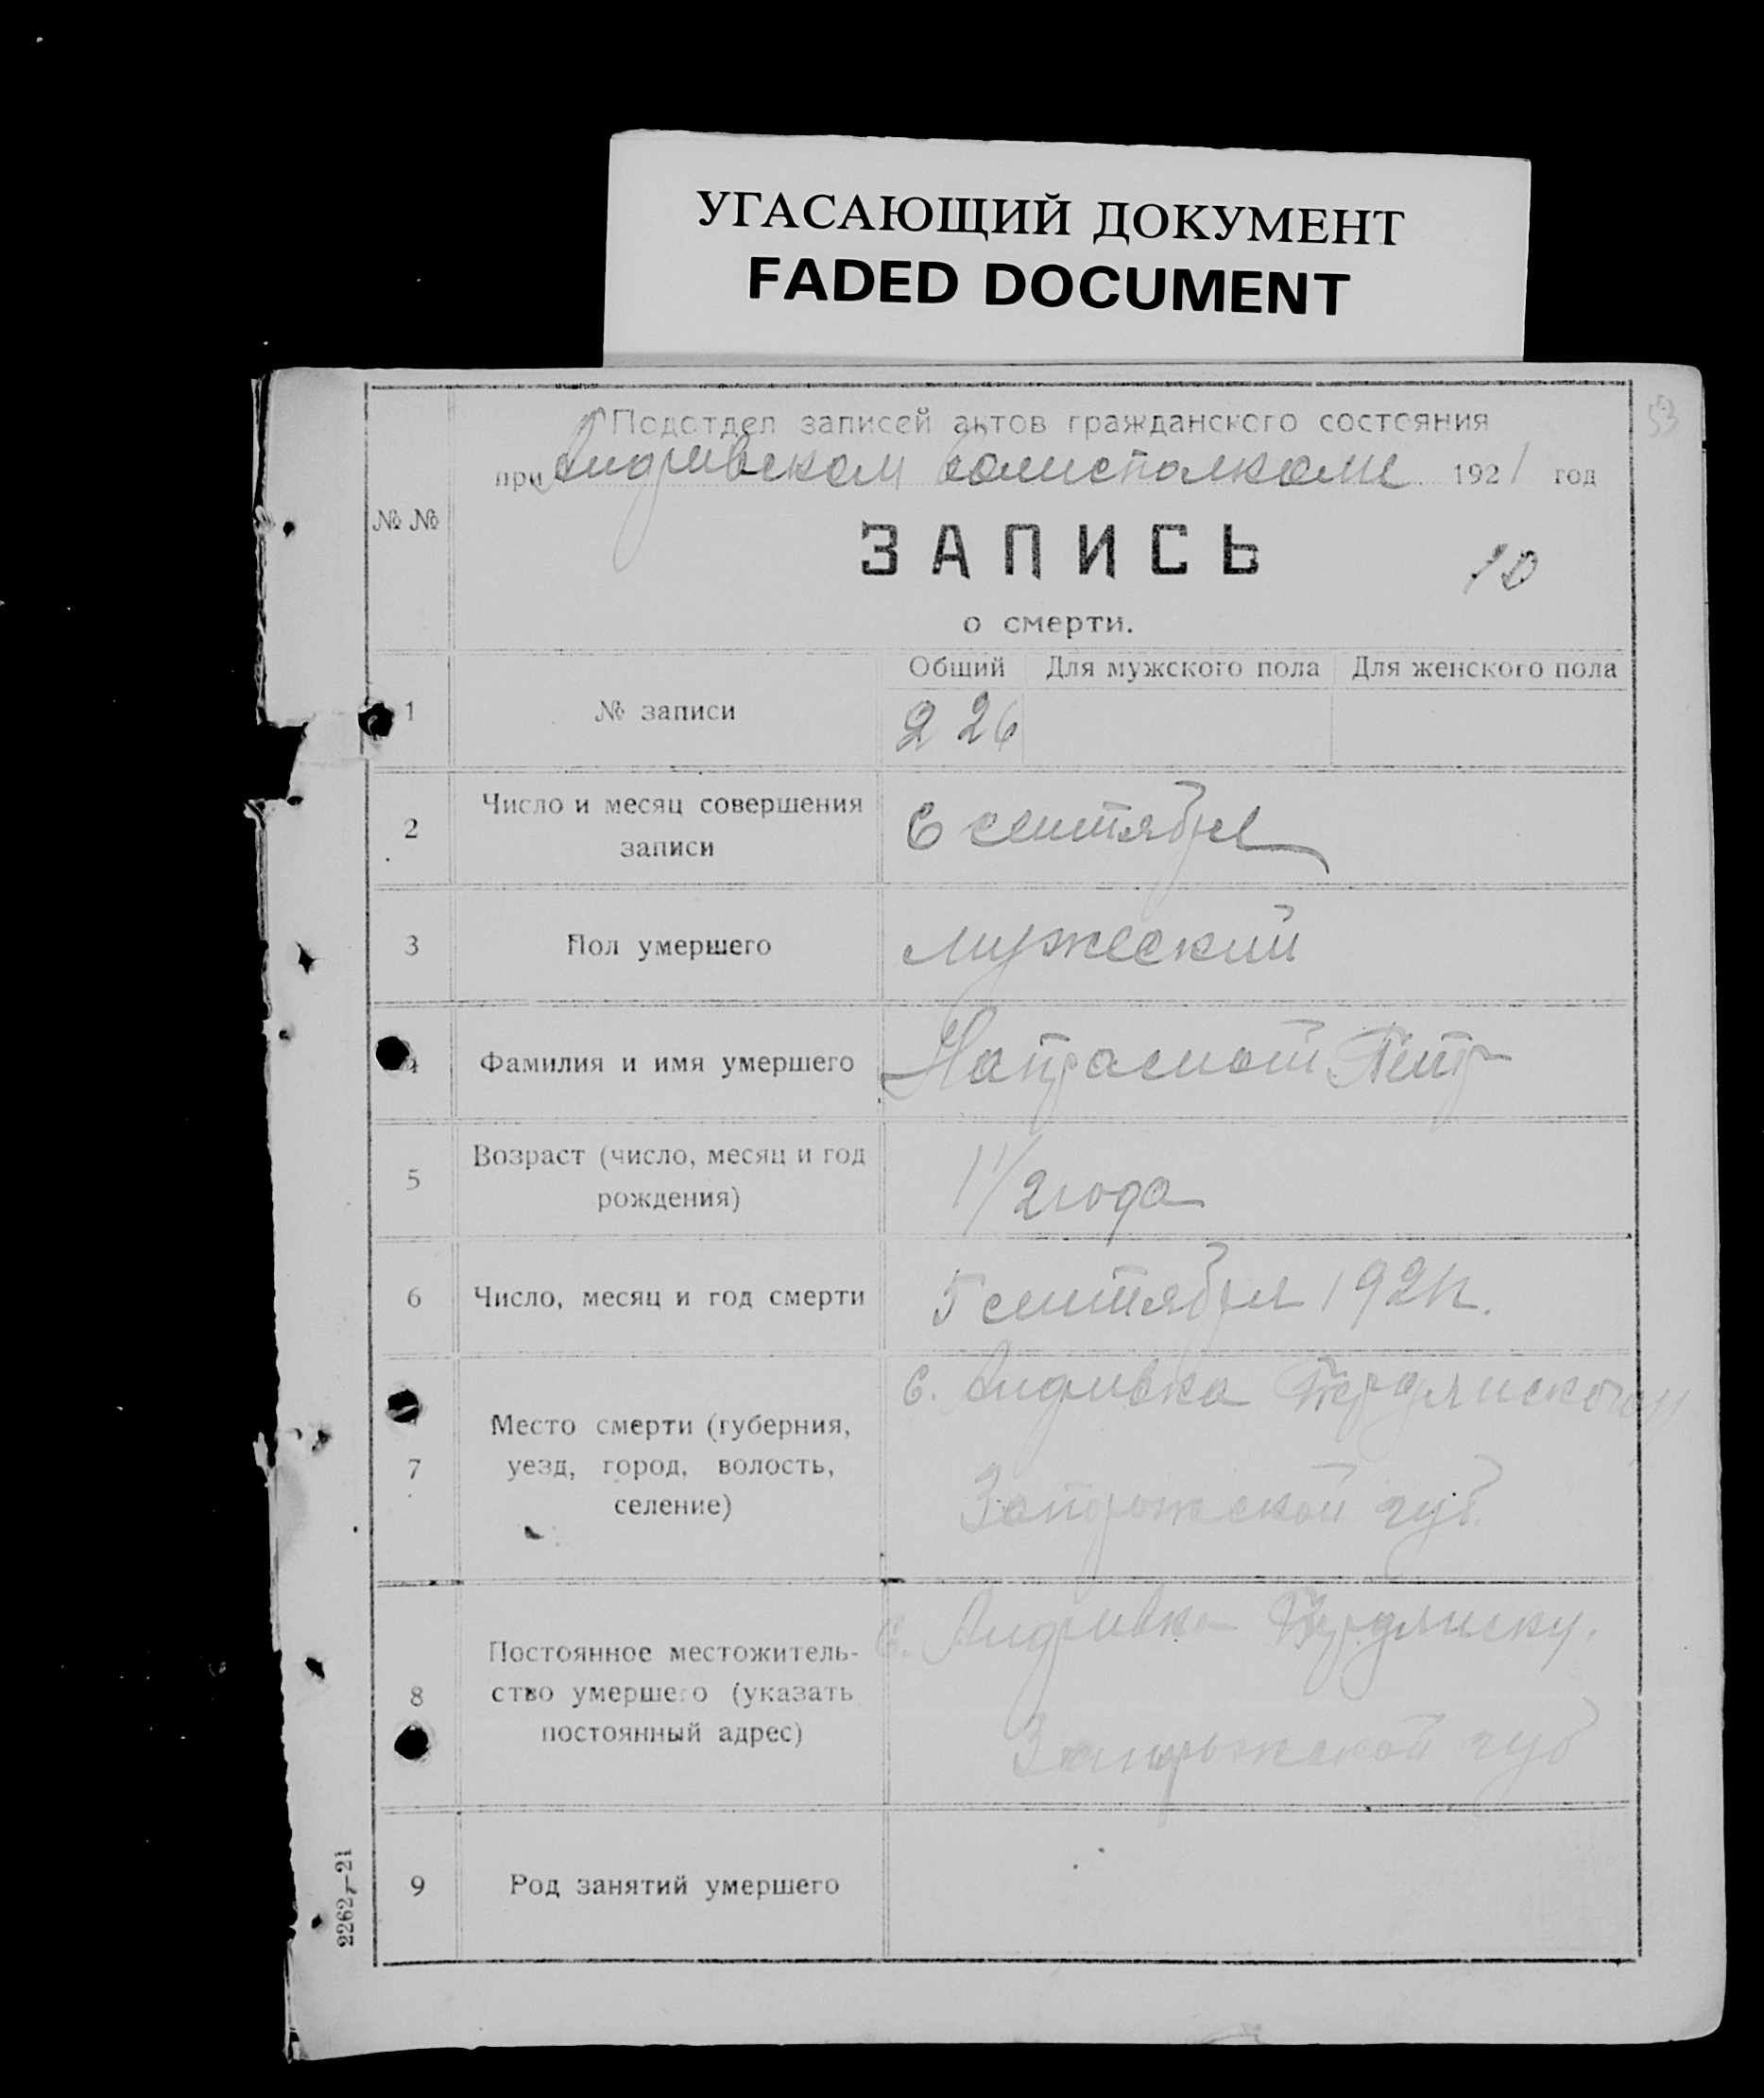 УГАСАЮЩИЙ ДОКУМЕНТ
FADED DOCUMENT
53
Подотдел записей актов гражданского состояния
при Андреевском волисполкоме 1921 год
№ №
ЗАПИСЬ
10
о смерти.
Общий Для мужского пола Для женского пола
1 № записи 226
2 Число и месяц совершения записи 6 сентября
3 Пол умершего мужеский
4 Фамилия и имя умершего Петр
5 Возраст (число, месяц и год рождения) 1 1/2 года
6 Число, месяц и год смерти 5 сентября 1921 г.
7 Место смерти (губерния, уезд, город, волость, селение) с. Андреевка Бердянского у
Запорожской губ.
8 Постоянное местожительство умершего (указать постоянный адрес) с. Андреевка Бердянск у.
Запорожской губ
9 Род занятий умершего
2262-21